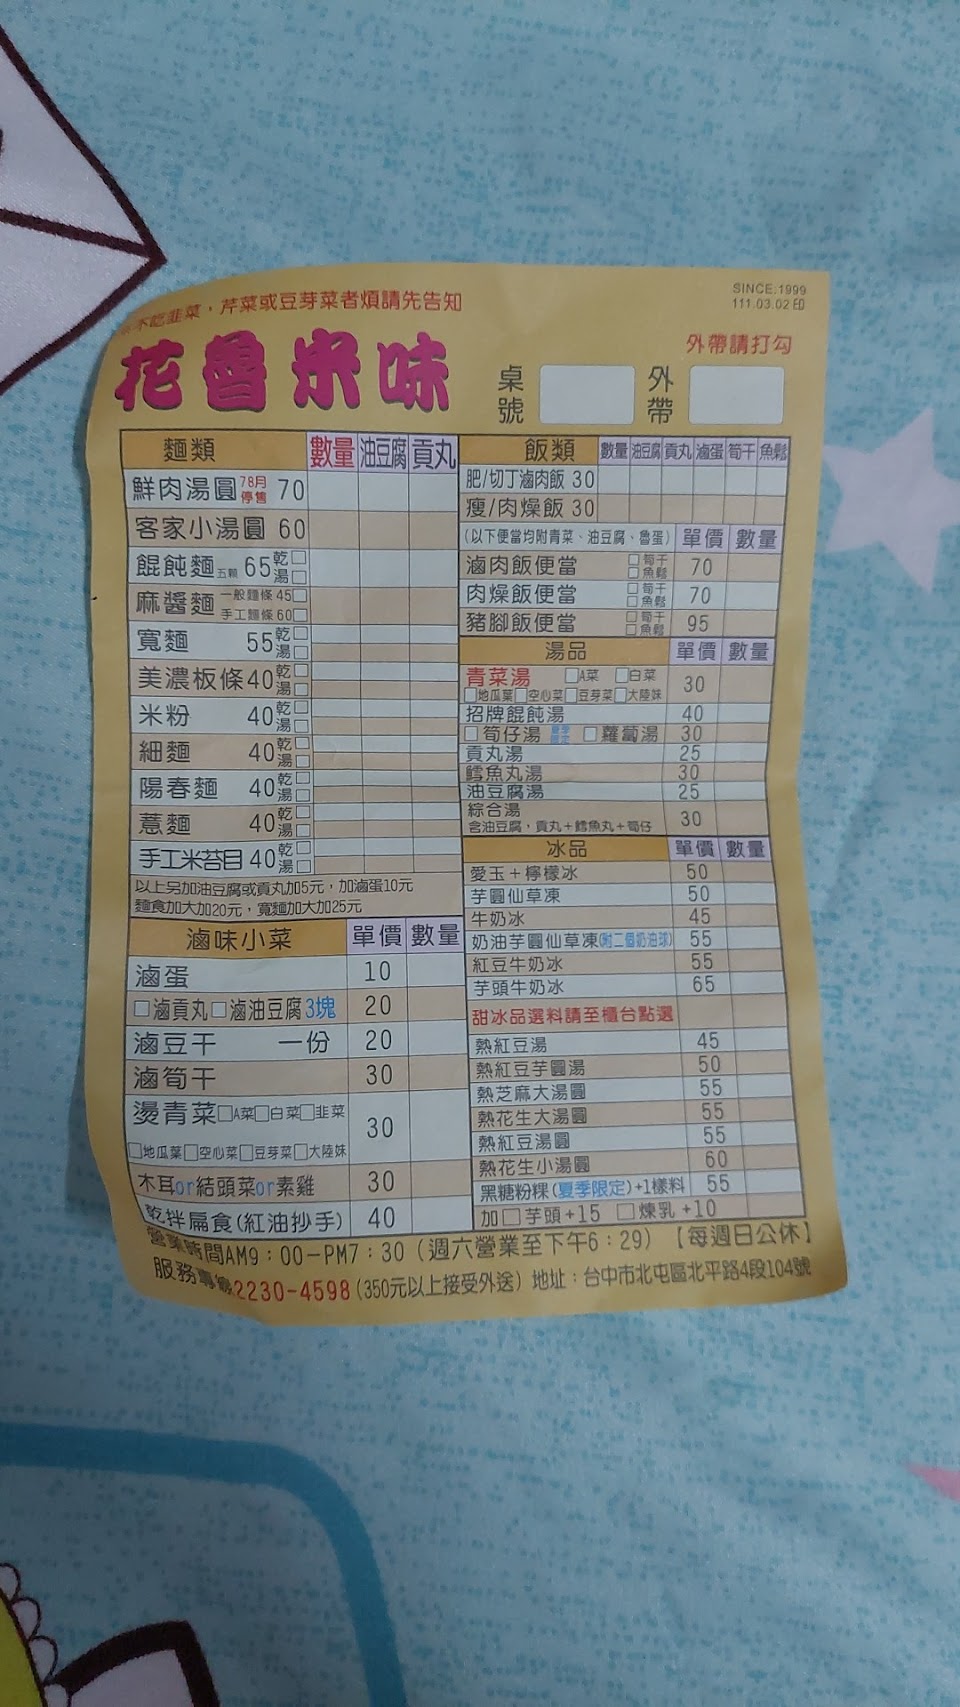 不吃韭菜，芹菜或豆芽菜者煩請先告知
SINCE:1999
111.03.02印
花魯米味
外帶請打勾
桌號
外帶
麵類 數量 油豆腐 貢丸
鮮肉湯圓 78月停售 70
客家小湯圓 60
餛飩麵 五顆 65 乾□ 湯□
麻醬麵 一般麵條 45□ 手工麵條 60□
寬麵 55 乾□ 湯□
美濃板條 40 乾□ 湯□
米粉 40 乾□ 湯□
細麵 40 乾□ 湯□
陽春麵 40 乾□ 湯□
薏麵 40 乾□ 湯□
手工米苔目 40 乾□ 湯□
以上另加油豆腐或貢丸加5元，加滷蛋10元
麵食加大加20元，寬麵加大加25元
滷味小菜 單價 數量
滷蛋 10
□滷貢丸□滷油豆腐3塊 20
滷豆干 一份 20
滷筍干 30
燙青菜□A菜□白菜□韭菜 30
□地瓜葉□空心菜□豆芽菜□大陸妹
木耳or結頭菜or素雞 30
乾拌扁食(紅油抄手) 40
飯類 數量 油豆腐 貢丸 滷蛋 筍干 魚鬆
肥/切丁滷肉飯 30
瘦/肉燥飯 30
(以下便當均附青菜、油豆腐、魯蛋) 單價 數量
滷肉飯便當 □筍干 □魚鬆 70
肉燥飯便當 □筍干 □魚鬆 70
豬腳飯便當 □筍干 □魚鬆 95
湯品 單價 數量
青菜湯 □A菜 □白菜 30
□地瓜葉□空心菜□豆芽菜□大陸妹
招牌餛飩湯 40
□筍仔湯 夏季限定 □蘿蔔湯 30
貢丸湯 25
鱈魚丸湯 30
油豆腐湯 25
綜合湯 30
含油豆腐，貢丸+鱈魚丸+筍仔
冰品 單價 數量
愛玉+檸檬冰 50
芋圓仙草凍 50
牛奶冰 45
奶油芋圓仙草凍(附二個奶油球) 55
紅豆牛奶冰 55
芋頭牛奶冰 65
甜冰品選料請至櫃台點選
熱紅豆湯 45
熱紅豆芋圓湯 50
熱芝麻大湯圓 55
熱花生大湯圓 55
熱紅豆湯圓 55
熱花生小湯圓 60
黑糖粉粿(夏季限定)+1樣料 55
加□芋頭+15 □煉乳+10
營業時間AM9：00-PM7：30（週六營業至下午6：29）【每週日公休】
服務專線2230-4598(350元以上接受外送) 地址：台中市北屯區北平路4段104號